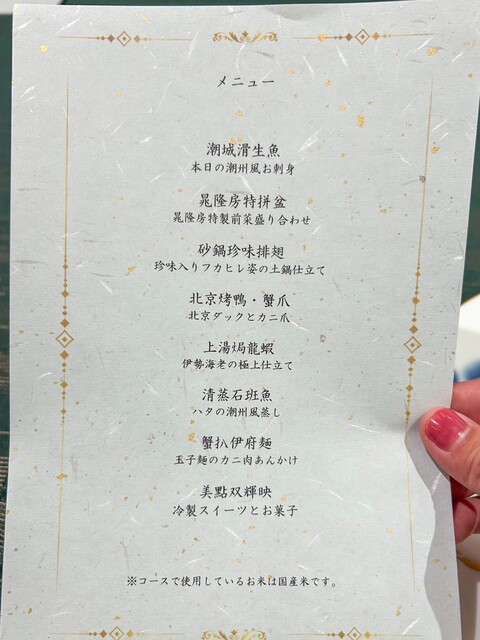 メニュー
潮城滑生魚
本日の潮州風お刺身
晁隆房特拼盆
晁隆房特製前菜盛り合わせ
砂鍋珍味排翅
珍味入りフカヒレ姿の土鍋仕立て
北京烤鴨・蟹爪
北京ダックとカニ爪
上湯焗龍蝦
伊勢海老の極上仕立て
清蒸石班魚
ハタの潮州風蒸し
蟹扒伊府麺
玉子麺のカニ肉あんかけ
美點双輝映
冷製スイーツとお菓子
※コースで使用しているお米は国産米です。